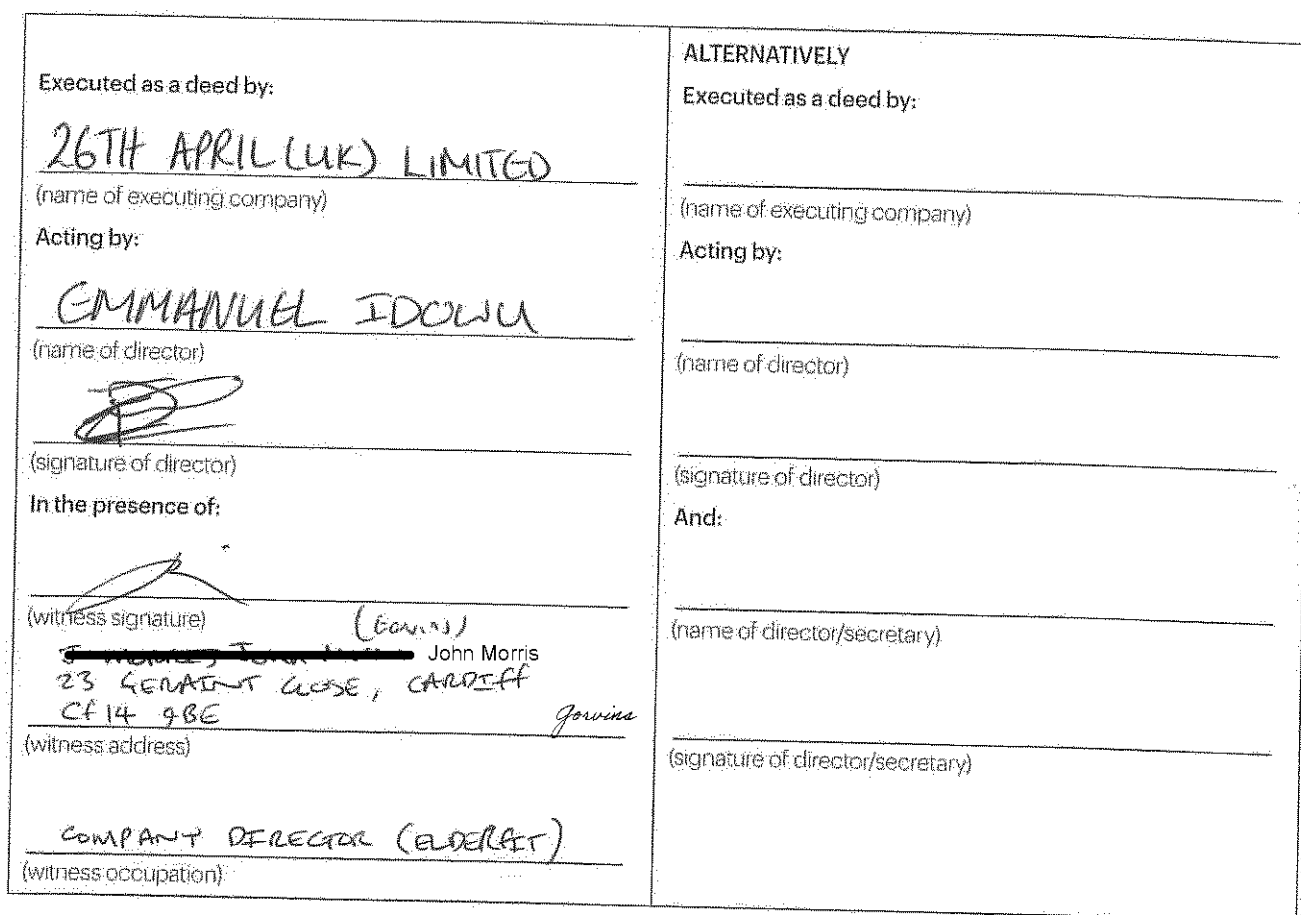 Executed as a deed by:
26TH APRIL (UK) LIMITED
(name of executing company)
Acting by:
EMMANUEL IDOWU
(name of director)
(signature of director)
In the presence of:
(witness signature)
John Morris
23 GERAINT CLOSE, CARDIFF
Cf14 9BE
gorvins
(witness address)
COMPANY DIRECTOR (ELDERFIT)
(witness occupation)
ALTERNATIVELY
Executed as a deed by:
(name of executing company)
Acting by:
(name of director)
(signature of director)
And:
(name of director/secretary)
(signature of director/secretary)